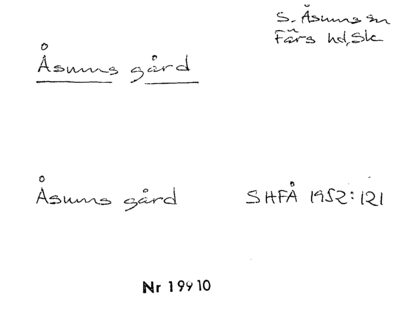 S. Åsums sn
Färs hd, Sk
Åsums gård
Åsums gård SHFÅ 1952:121
Nr 19910